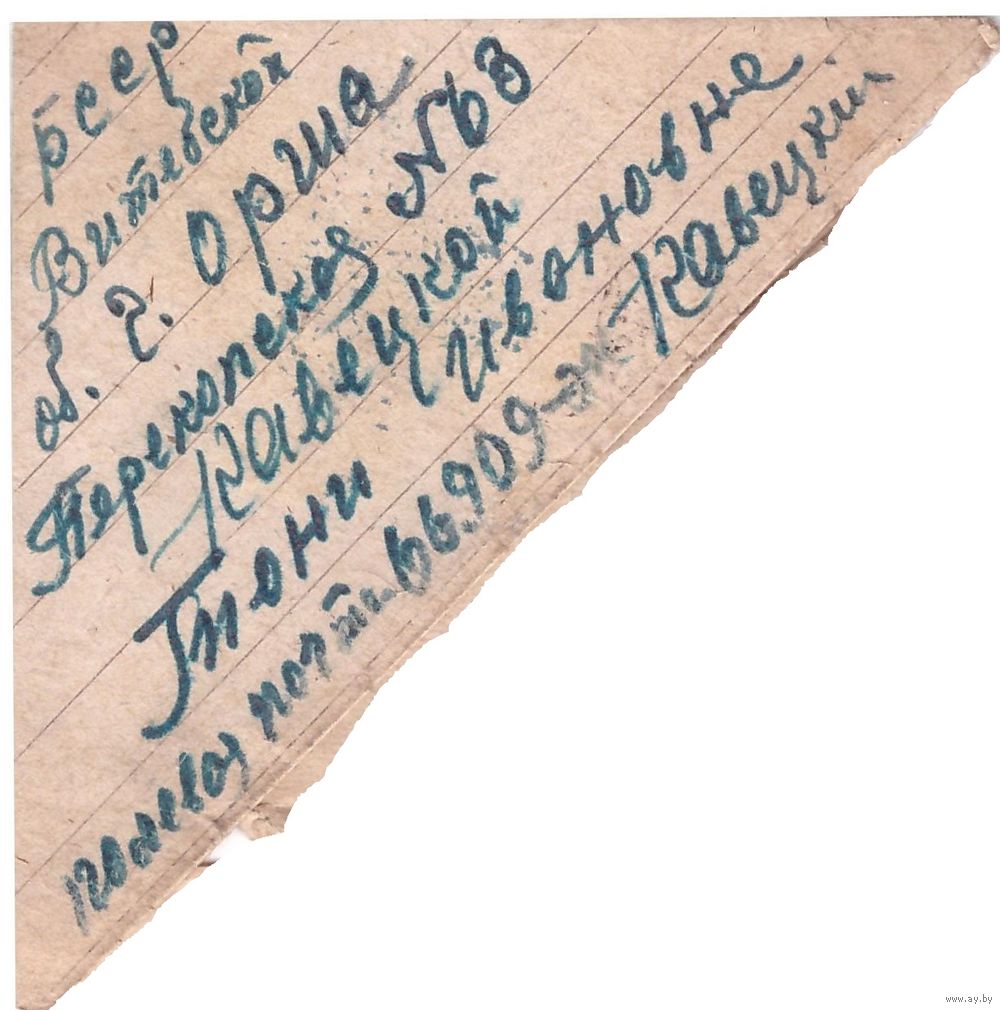 БССР
Витебской
об. г. Орша
Перекопская №63
Кавецкой
Тони Ивановне
полевая почта 66909-ж Кавецкий
www.ay.by